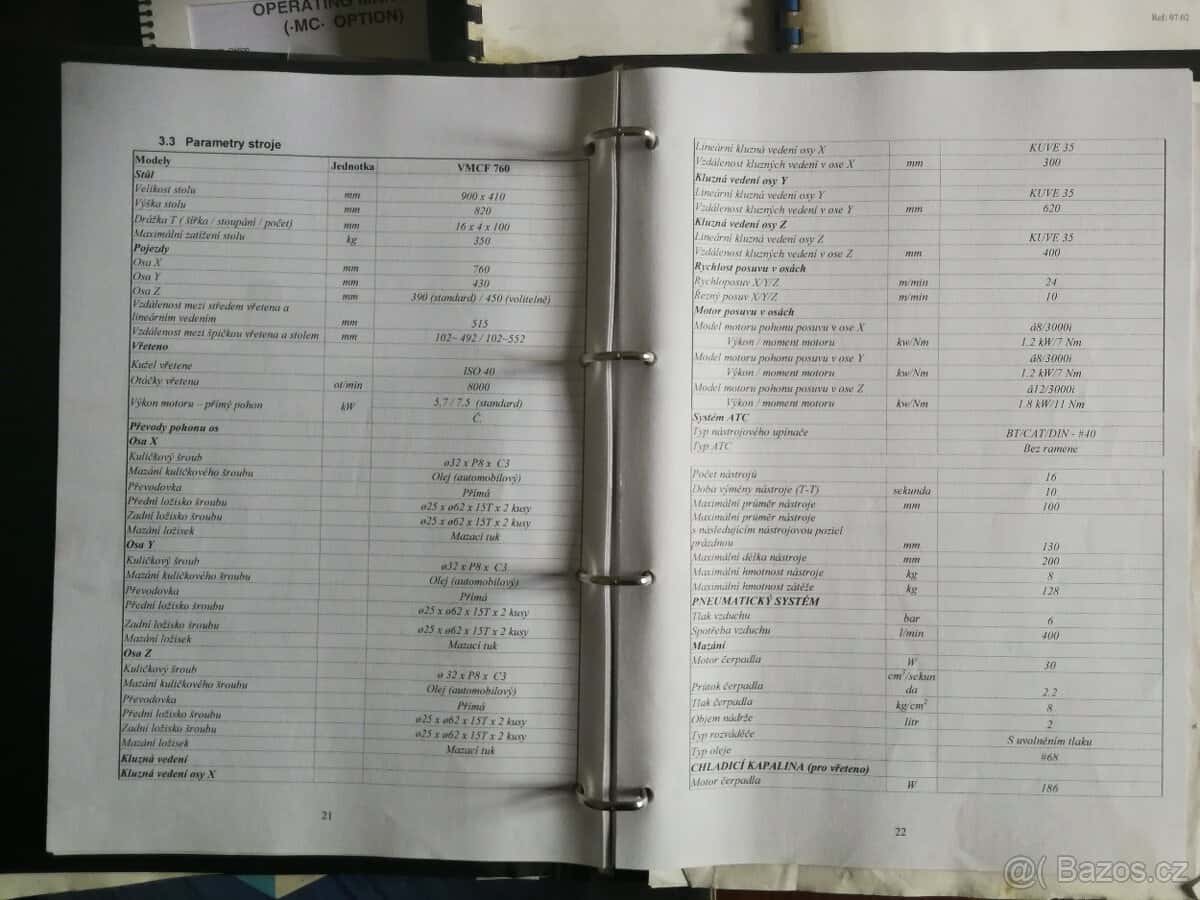 OPERATING
(-MC- OPTION)
Ref: 07.02
3.3 Parametry stroje
Modely Jednotka VMCF 760
Stůl
Velikost stolu mm 900 x 410
Výška stolu mm 820
Drážka T ( šířka / stoupání / počet) mm 16 x 4 x 100
Maximální zatížení stolu kg 350
Pojezdy
Osa X mm 760
Osa Y mm 430
Osa Z mm 390 (standard) / 450 (volitelně)
Vzdálenost mezi středem vřetena a
lineárním vedením mm 515
Vzdálenost mezi špičkou vřetena a stolem mm 102~ 492 / 102~552
Vřeteno
Kužel vřetene ISO 40
Otáčky vřetena ot/min 8000
Výkon motoru – přímý pohon kW 5,7 / 7,5 (standard)
Č.
Převody pohonu os
Osa X
Kuličkový šroub ø32 x P8 x C3
Mazání kuličkového šroubu Olej (automobilový)
Převodovka Přímá
Přední ložisko šroubu ø25 x ø62 x 15T x 2 kusy
Zadní ložisko šroubu ø25 x ø62 x 15T x 2 kusy
Mazání ložisek Mazací tuk
Osa Y
Kuličkový šroub ø32 x P8 x C3
Mazání kuličkového šroubu Olej (automobilový)
Převodovka Přímá
Přední ložisko šroubu ø25 x ø62 x 15T x 2 kusy
Zadní ložisko šroubu ø25 x ø62 x 15T x 2 kusy
Mazání ložisek Mazací tuk
Osa Z
Kuličkový šroub ø 32 x P8 x C3
Mazání kuličkového šroubu Olej (automobilový)
Převodovka Přímá
Přední ložisko šroubu ø25 x ø62 x 15T x 2 kusy
Zadní ložisko šroubu ø25 x ø62 x 15T x 2 kusy
Mazání ložisek Mazací tuk
Kluzná vedení
Kluzná vedení osy X
21
Lineární kluzná vedení osy X KUVE 35
Vzdálenost kluzných vedení v ose X mm 300
Kluzná vedení osy Y
Lineární kluzná vedení osy Y KUVE 35
Vzdálenost kluzných vedení v ose Y mm 620
Kluzná vedení osy Z
Lineární kluzná vedení osy Z KUVE 35
Vzdálenost kluzných vedení v ose Z mm 400
Rychlost posuvu v osách
Rychloposuv X/Y/Z m/min 24
Řezný posuv X/Y/Z m/min 10
Motor posuvu v osách
Model motoru pohonu posuvu v ose X á8/3000i
Výkon / moment motoru kw/Nm 1.2 kW/7 Nm
Model motoru pohonu posuvu v ose Y á8/3000i
Výkon / moment motoru kw/Nm 1.2 kW/7 Nm
Model motoru pohonu posuvu v ose Z á12/3000i
Výkon / moment motoru kw/Nm 1.8 kW/11 Nm
Systém ATC
Typ nástrojového upínače BT/CAT/DIN - #40
Typ ATC Bez ramene
Počet nástrojů 16
Doba výměny nástroje (T-T) sekunda 10
Maximální průměr nástroje mm 100
Maximální průměr nástroje
s následujícím nástrojovou pozicí
prázdnou mm 130
Maximální délka nástroje mm 200
Maximální hmotnost nástroje kg 8
Maximální hmotnost zátěže kg 128
PNEUMATICKÝ SYSTÉM
Tlak vzduchu bar 6
Spotřeba vzduchu l/min 400
Mazání
Motor čerpadla W 30
cm³/sekun
Průtok čerpadla da 2.2
Tlak čerpadla kg/cm² 8
Objem nádrže litr 2
Typ rozváděče S uvolněním tlaku
Typ oleje #68
CHLADICÍ KAPALINA (pro vřeteno)
Motor čerpadla W 186
22
@( Bazos.cz